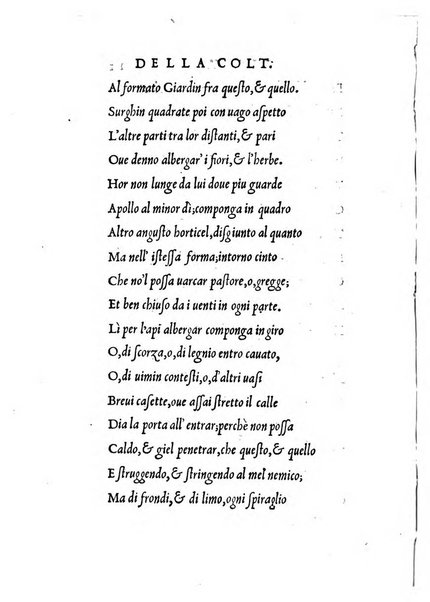 DELLA COLT.
Al formato Giardin fra questo,& quello.
Surghin quadrate poi con uago aspetto
L'altre parti tra lor distanti, & pari
Oue denno albergar' i fiori, & l'herbe.
Hor non lunge da lui doue piu guarde
Apollo al minor dì;componga in quadro
Altro angusto horticel, disgiunto al quanto
Ma nell' istessa forma;intorno cinto
Che no'l possa uarcar pastore,o,gregge;
Et ben chiuso da i uenti in ogni parte.
Lì per l'api albergar componga in giro
O,di scorza,o,di legnio entro cauato,
O,di uimin contesti,o,d'altri uasi
Breui casette,oue assai stretto il calle
Dia la porta all' entrar;perchè non possa
Caldo,& giel penetrar,che questo,& quello
E struggendo,& stringendo al mel nemico;
Ma di frondi,& di limo,ogni spiraglio